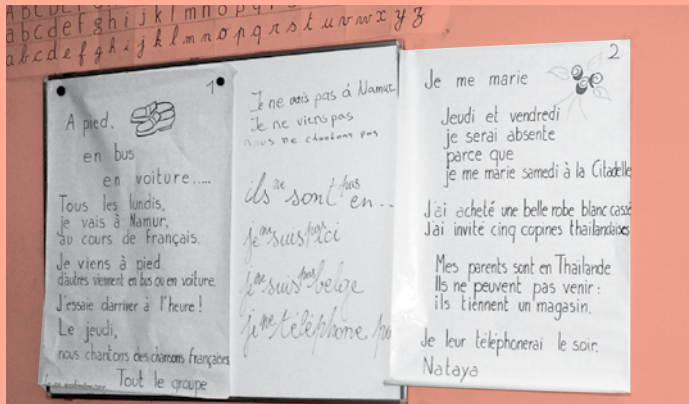 A B C D E F G
a b c d e f g h i j k l m n o p q r
a b c d e f g h i j k l m n o p q r s t u v w x y z
1
A pied.
en bus
en voiture.....
Tous les lundis,
je vais à Namur,
au cours de français.
Je viens à pied
d'autres viennent en bus ou en voiture.
J'essaie d'arriver à l'heure !
Le jeudi,
nous chantons des chansons françaises
Tout le groupe
Je ne vais pas à Namur
Je ne viens pas
nous ne chantons pas
ils ne sont pas en...
je ne suis pas ici
je ne suis pas belge
je ne téléphone pa
2
Je me marie
Jeudi et vendredi
je serai absente
parce que
je me marie samedi à la Citadelle
J'ai acheté une belle robe blanc cassé
J'ai invité cinq copines thaïlandaises
Mes parents sont en Thaïlande.
Ils ne peuvent pas venir :
ils tiennent un magasin.
Je leur téléphonerai le soir.
Nataya